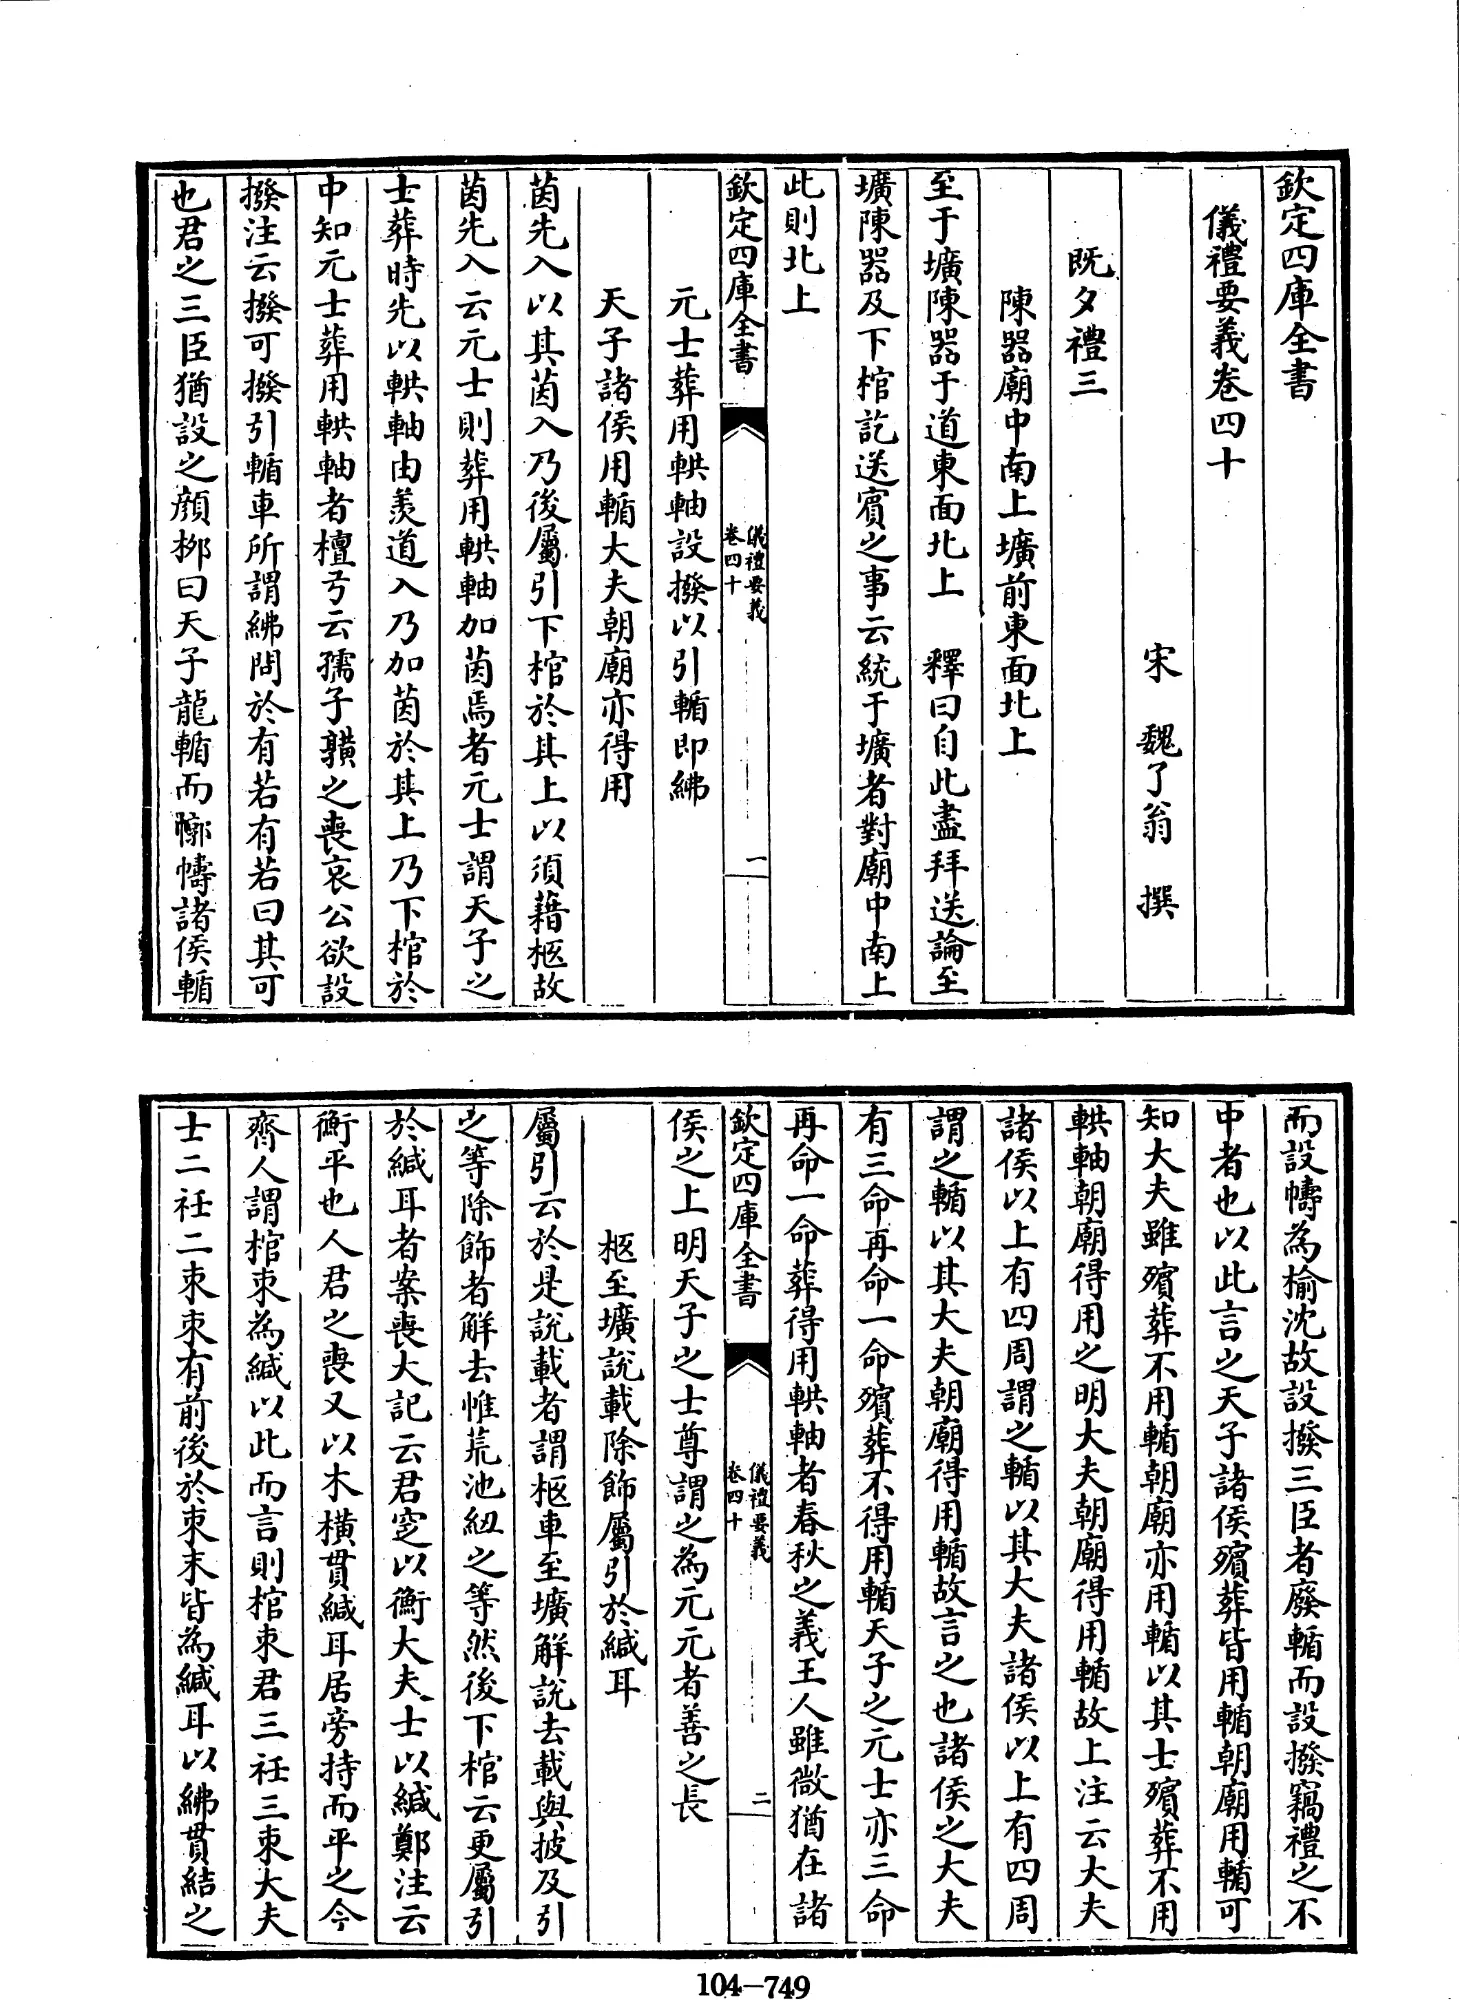 欽定四庫全書
儀禮要義卷四十
宋 魏了翁 撰
既夕禮三
陳器廟中南上壙前東面北上
至于壙陳器于道東面北上 釋曰自此盡拜送論至
壙陳器及下棺訖送賓之事云統于壙者對廟中南上
此則北上
欽定四庫全書
儀禮要義
卷四十
一
元士葬用輁軸設撥以引輴即紼
天子諸侯用輴大夫朝廟亦得用
茵先入以其茵入乃後屬引下棺於其上以須藉柩故
茵先入云元士則葬用輁軸加茵焉者元士謂天子之
士葬時先以輁軸由羨道入乃加茵於其上乃下棺於
中知元士葬用輁軸者檀弓云孺子䵍之喪哀公欲設
撥注云撥可撥引輴車所謂紼問於有若有若曰其可
也君之三臣猶設之顔栁曰天子龍輴而㡓幬諸侯輴
而設幬為榆沈故設撥三臣者廢輴而設撥竊禮之不
中者也以此言之天子諸侯殯葬皆用輴朝廟用輴可
知大夫雖殯葬不用輴朝廟亦用輴以其士殯葬不用
輁軸朝廟得用之明大夫朝廟得用輴故上注云大夫
諸侯以上有四周謂之輴以其大夫諸侯以上有四周
謂之輴以其大夫朝廟得用輴故言之也諸侯之大夫
有三命再命一命殯葬不得用輴天子之元士亦三命
再命一命葬得用輁軸者春秋之義王人雖微猶在諸
欽定四庫全書
儀禮要義
卷四十
二
侯之上明天子之士尊謂之為元元者善之長
柩至壙說載除飾屬引於緘耳
屬引云於是說載者謂柩車至壙解說去載與披及引
之等除飾者解去帷荒池紐之等然後下棺云更屬引
於緘耳者案喪大記云君窆以衡大夫士以緘鄭注云
衡平也人君之喪又以木橫貫緘耳居旁持而平之今
齊人謂棺束為緘以此而言則棺束君三衽三束大夫
士二衽二束束有前後於束末皆為緘耳以紼貫結之
104-749